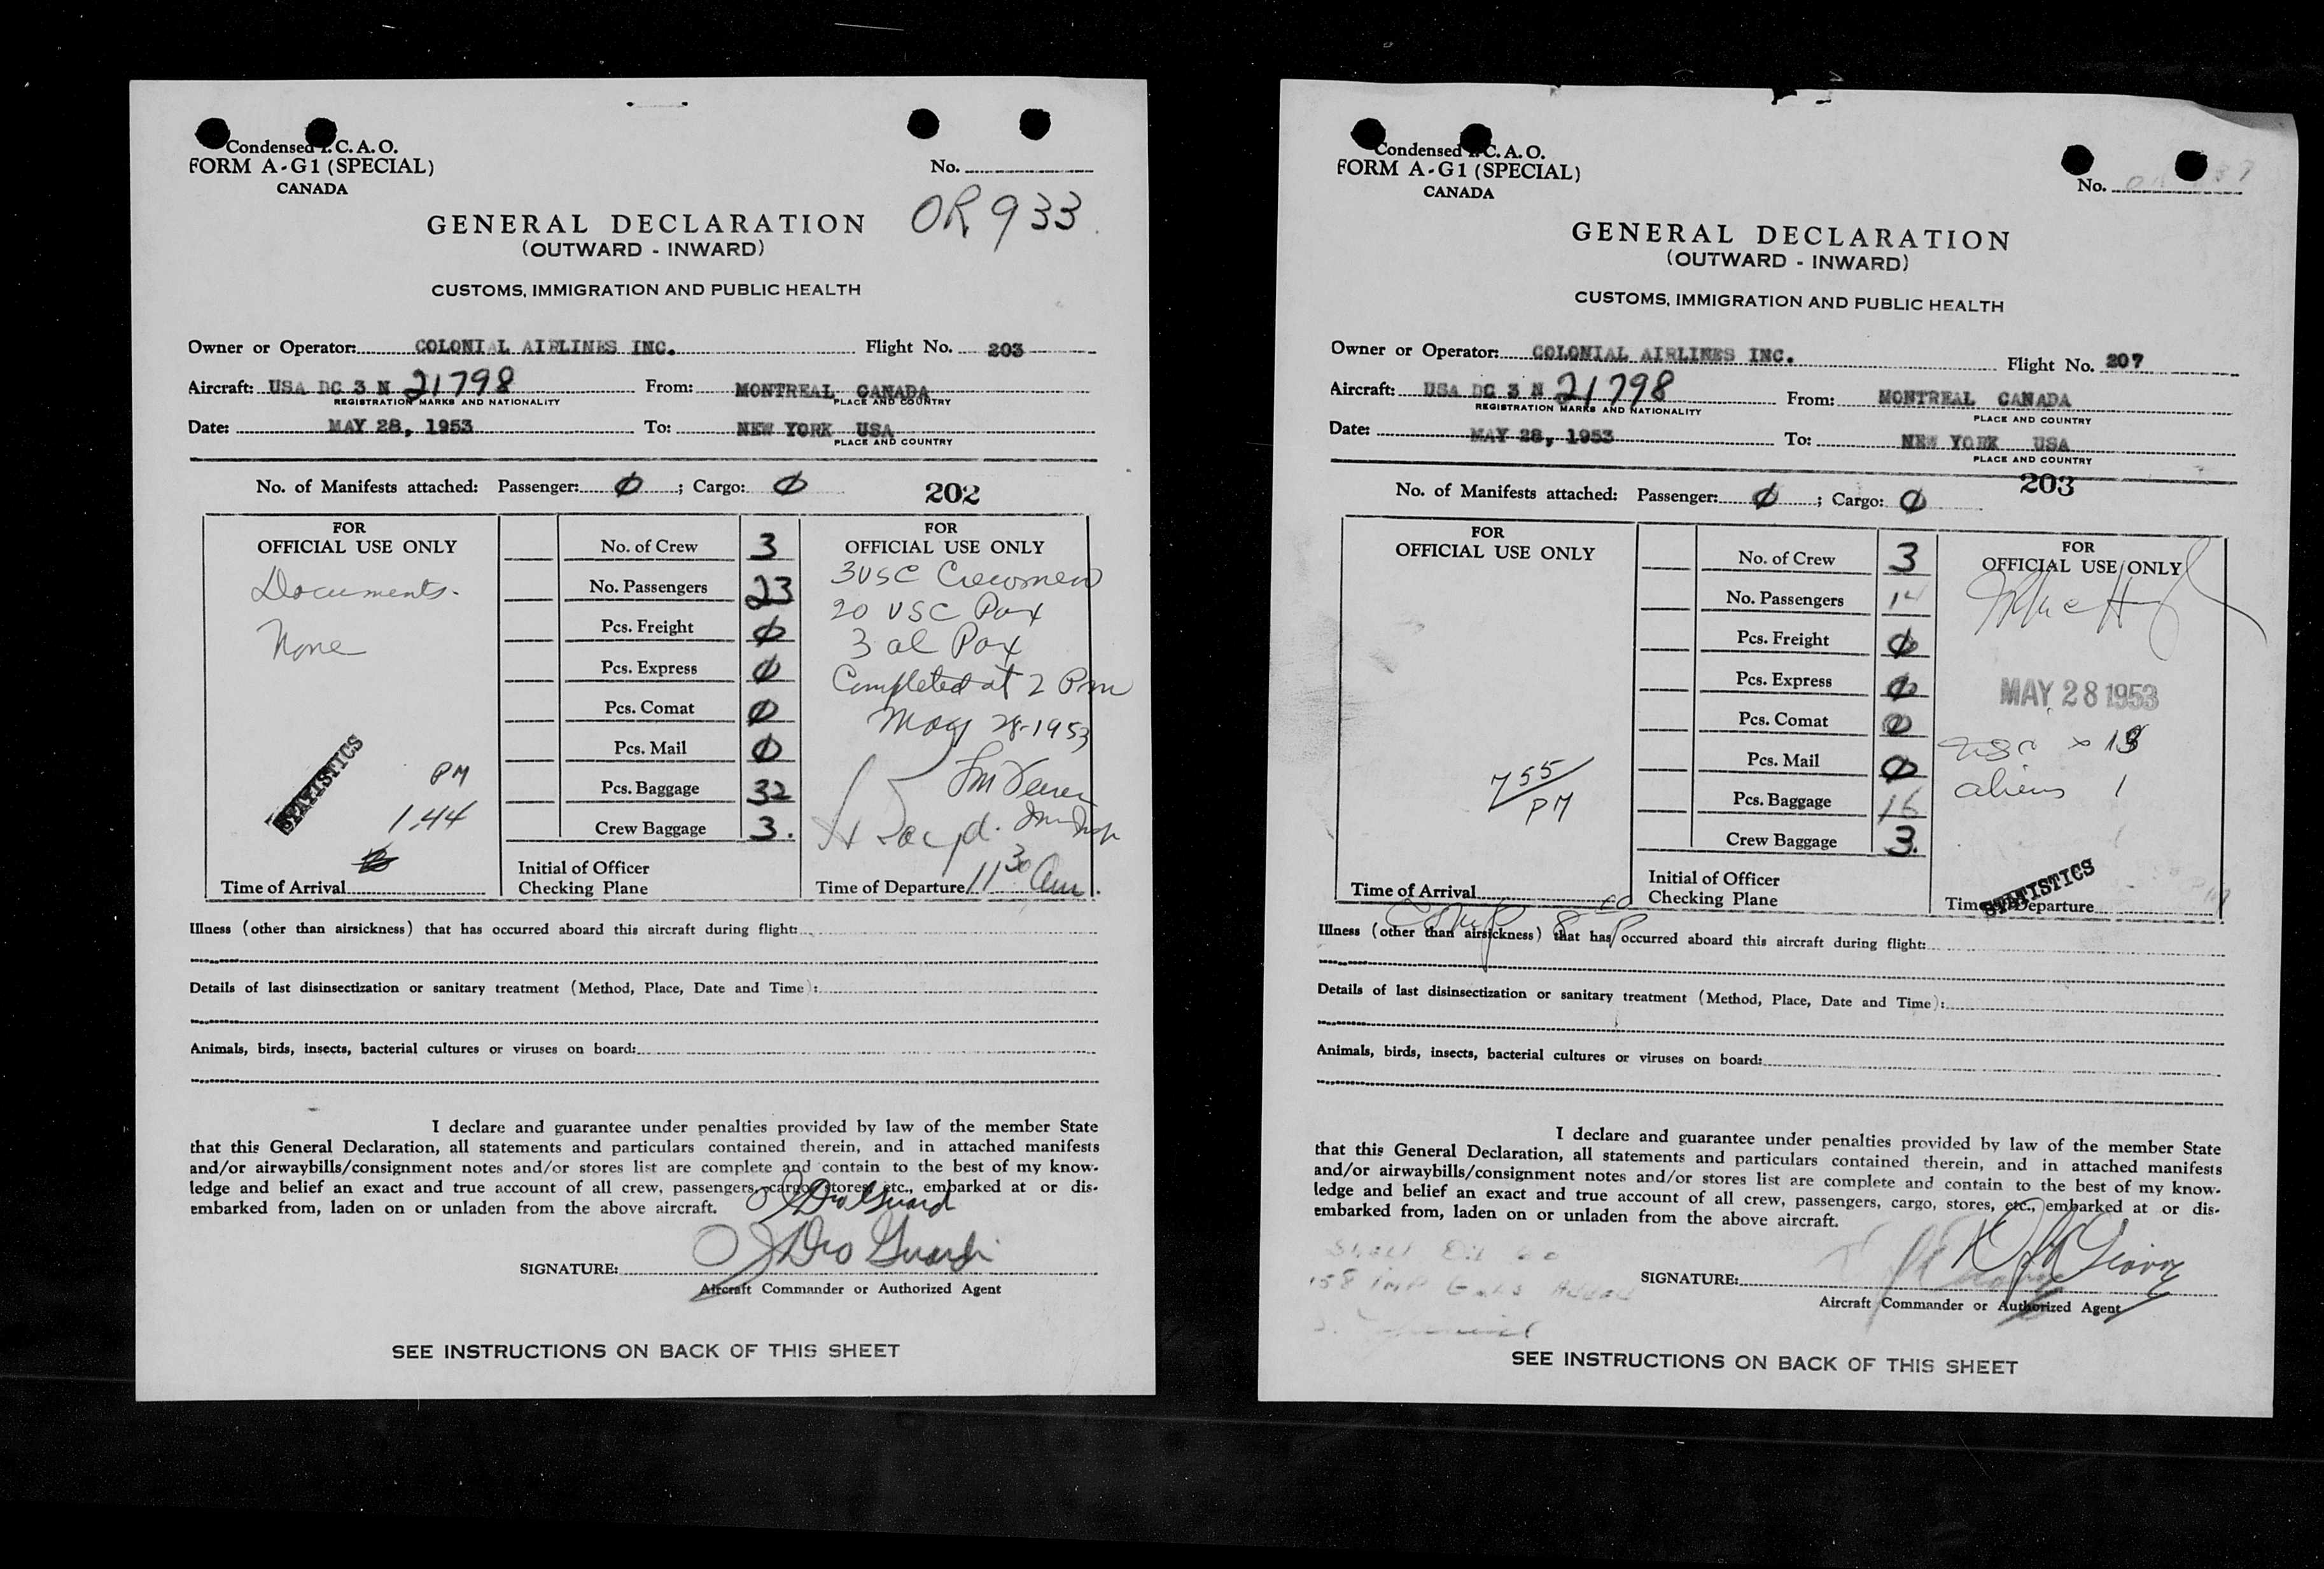 Condensed I.C.A.O.
FORM A-G1 (SPECIAL)
CANADA
No.
OR 933
GENERAL DECLARATION
(OUTWARD - INWARD)
CUSTOMS, IMMIGRATION AND PUBLIC HEALTH
Owner or Operator: COLONIAL AIRLINES INC. Flight No. 203
Aircraft: USA DC 3 N 21798 From: MONTREAL CANADA
REGISTRATION MARKS AND NATIONALITY PLACE AND COUNTRY
Date: MAY 28, 1953 To: NEW YORK USA
PLACE AND COUNTRY
No. of Manifests attached: Passenger: 0 ; Cargo: 0 202
FOR
OFFICIAL USE ONLY
Documents.
None
STATISTICS
PM
1.44
Time of Arrival
No. of Crew 3
No. Passengers 23
Pcs. Freight 0
Pcs. Express 0
Pcs. Comat 0
Pcs. Mail 0
Pcs. Baggage 32
Crew Baggage 3.
Initial of Officer
Checking Plane
FOR
OFFICIAL USE ONLY
3 USC Crewmen
20 USC Pax
3 al Pax
Completed at 2 Pm
May 28-1953
Time of Departure 11 30 Am.
Illness (other than airsickness) that has occurred aboard this aircraft during flight:
Details of last disinsectization or sanitary treatment (Method, Place, Date and Time):
Animals, birds, insects, bacterial cultures or viruses on board:
I declare and guarantee under penalties provided by law of the member State
that this General Declaration, all statements and particulars contained therein, and in attached manifests
and/or airwaybills/consignment notes and/or stores list are complete and contain to the best of my know-
ledge and belief an exact and true account of all crew, passengers, cargo, stores, etc., embarked at or dis-
embarked from, laden on or unladen from the above aircraft.
SIGNATURE:
Aircraft Commander or Authorized Agent
SEE INSTRUCTIONS ON BACK OF THIS SHEET
Condensed I.C.A.O.
FORM A-G1 (SPECIAL)
CANADA
No.
GENERAL DECLARATION
(OUTWARD - INWARD)
CUSTOMS, IMMIGRATION AND PUBLIC HEALTH
Owner or Operator: COLONIAL AIRLINES INC. Flight No. 207
Aircraft: USA DC 3 N 21798 From: MONTREAL CANADA
REGISTRATION MARKS AND NATIONALITY PLACE AND COUNTRY
Date: MAY 28, 1953 To: NEW YORK USA
PLACE AND COUNTRY
203
No. of Manifests attached: Passenger: 0 ; Cargo: 0
FOR
OFFICIAL USE ONLY
7 55
PM
Time of Arrival
No. of Crew 3
No. Passengers 14
Pcs. Freight 0
Pcs. Express 0
Pcs. Comat 0
Pcs. Mail 0
Pcs. Baggage 16
Crew Baggage 3.
Initial of Officer
Checking Plane
FOR
OFFICIAL USE ONLY
MAY 28 1953
usc x 13
aliens 1
STATISTICS
Time of Departure
Illness (other than airsickness) that has occurred aboard this aircraft during flight:
Details of last disinsectization or sanitary treatment (Method, Place, Date and Time):
Animals, birds, insects, bacterial cultures or viruses on board:
I declare and guarantee under penalties provided by law of the member State
that this General Declaration, all statements and particulars contained therein, and in attached manifests
and/or airwaybills/consignment notes and/or stores list are complete and contain to the best of my know-
ledge and belief an exact and true account of all crew, passengers, cargo, stores, etc., embarked at or dis-
embarked from, laden on or unladen from the above aircraft.
SIGNATURE:
Aircraft Commander or Authorized Agent
SEE INSTRUCTIONS ON BACK OF THIS SHEET